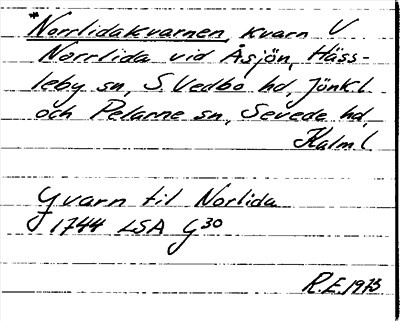 *Norrlidakvarnen, kvarn V
Norrlida vid Åsjön, Häss-
leby sn, S. Vedbo hd, Jönk l
och Pelarne sn, Sevede hd,
Kalm l
Qvarn til Norlida
1744 LSA G30
R.E. 1973